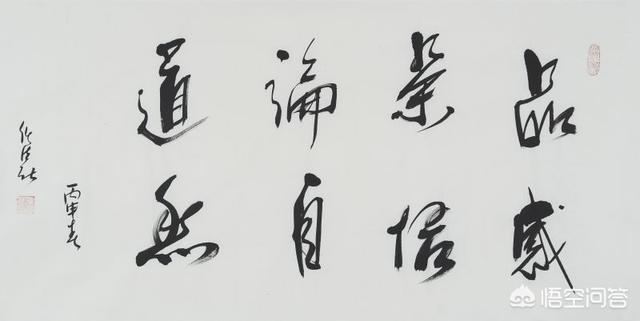 品茶論道
感悟自然
丙申春
悟空问答